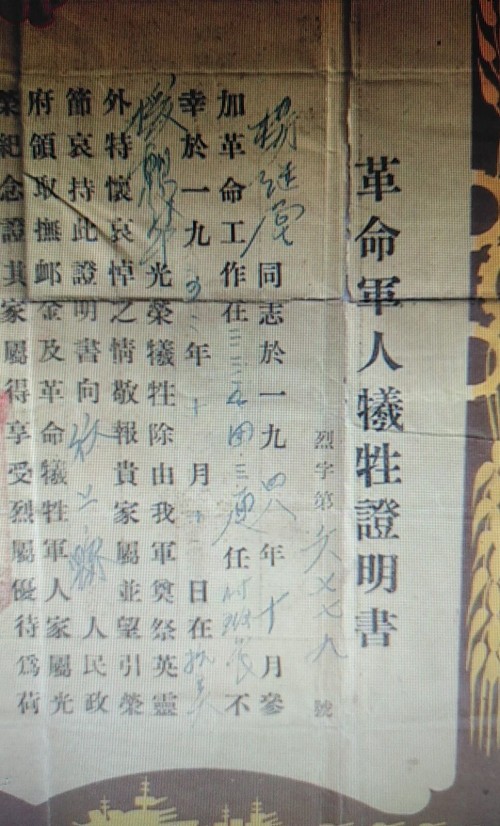 革命軍人犧牲證明書
烈字第 七七九 號
楊 同志於一九四八年十月參
加革命工作在三三五团三連任付班長不
幸於一九五 年十月十 日在抗美
援朝 光榮犧牲除由我軍奠祭英靈
外特懷哀悼之情敬報貴家屬並望引榮
節哀持此證明書向 縣人民政
府領取撫邮金及革命犧牲軍人家屬光
榮紀念證其家屬得享受烈屬優待爲荷